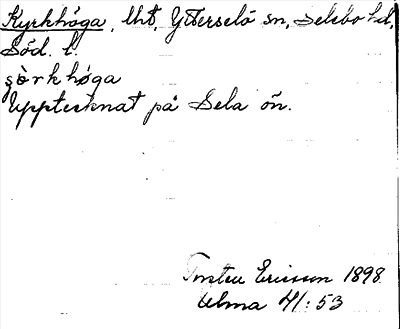 Kyrkhöga, lht, Ytterselö sn, Selebo hd,
Söd. l.
şö̀rkhøga
Upptecknat på Sela ön.
Torsten Ericsson 1898
Ulma 41:53